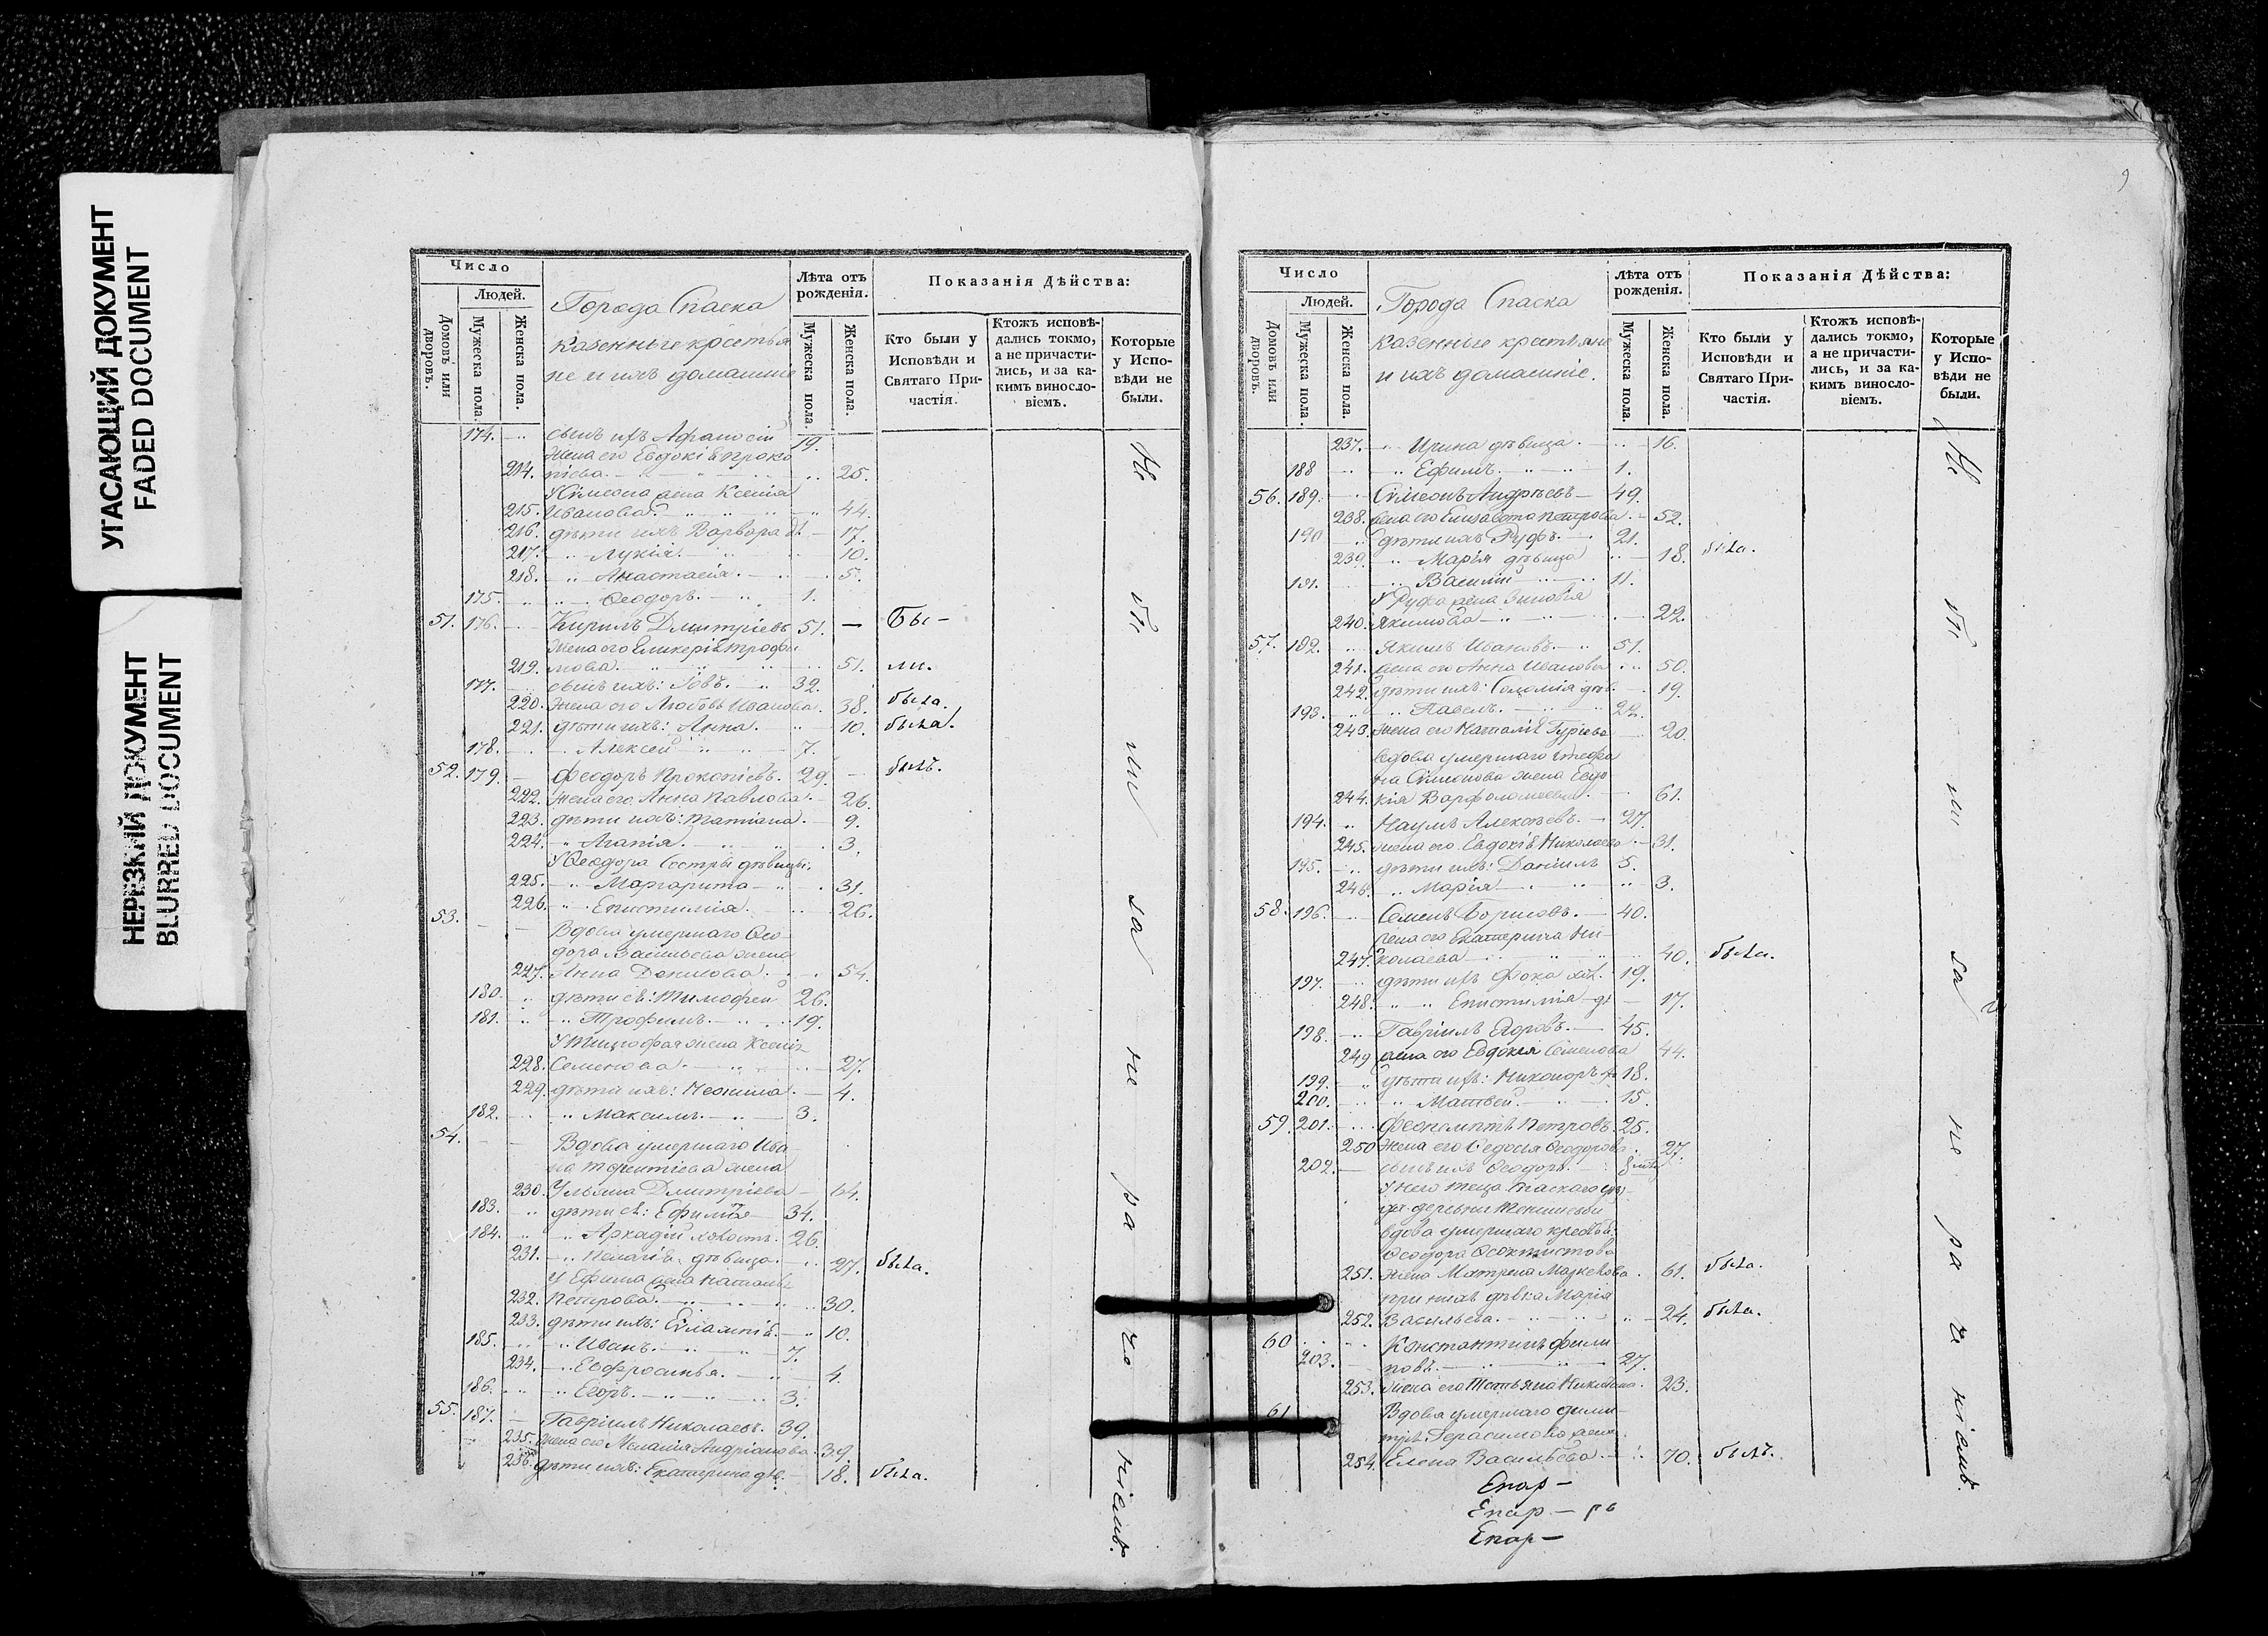 УГАСАЮЩИЙ ДОКУМЕНТ
FADED DOCUMENT
НЕРЕЗКИЙ ДОКУМЕНТ
BLURRED DOCUMENT
Число
Людей.
Домовъ или дворовъ.
Мужеска пола.
Женска пола.
Города Спаска
казенные крестья
не и ихъ домашние
Лѣта отъ рожденія.
Мужеска пола.
Женска пола.
Показанія Дѣйства:
Кто были у Исповѣди и Святаго Причастія.
Ктожъ исповѣдались токмо, а не причастились, и за какимъ винословіемъ.
Которые у Исповѣди не были.
174. сынъ ихъ Афанасій 19.
жена его Евдокія Проко
214. піева 25.
У Сѵмеона жена Ксенія
215. Иванова 44.
216. дѣти ихъ Варвара д. 17.
217. Лукія 10.
218. Анастасія. 5.
175. Ѳеодоръ. 1.
51. 176. Кирилъ Дмитріевъ 51. Бы-
жена его Гликерія Трофи
219. мова. 51. ли.
177. сынъ ихъ: Іовъ. 32.
220. жена его Любовь Иванова. 38. была.
221. дѣти ихъ: Анна. 10. была.
178. Алексей 7.
52. 179. Феодоръ Прокопіевъ. 29. былъ.
222. жена его Анна Павлова. 26.
223. дѣти ихъ: Татіана. 9.
224. Агапія. 3.
У Ѳеодора сестры дѣвицы,
225. Маргарита 31.
226. Епистимія. 26.
53. Вдова умершаго Ѳео-
дора Васильева жена
227. Анна Данилова. 54.
180. дѣти ея: Тимофей 26.
181. Трофимъ. 19.
У Тимофея жена Ксенія
228. Семенова. 27.
229. дѣти ихъ: Неонила. 4.
182. Максимъ. 3.
54. Вдова умершаго Ива
на Терентіева жена
230. Ульяна Дмитріева 64.
183. дѣти ея: Ефимъ 34.
184. Аркадій холостъ. 26.
231. Пелагія дѣвица. 27. была.
У Ефима жена Наталья
232. Петрова. 30.
233. дѣти ихъ: Евлампія. 10.
185. Иванъ. 7.
234. Евфросинья. 4.
186. Егоръ. 3.
55. 187. Гавріилъ Николаевъ. 39.
235. жена его Меланія Андріанова. 39.
236. дѣти ихъ: Екатерина дѣв. 18. была.
Не бы ли за не ра че ніемъ.
9
Число
Людей.
Домовъ или дворовъ.
Мужеска пола.
Женска пола.
Города Спаска
казенные крестьяне
и ихъ домашніе.
Лѣта отъ рожденія.
Мужеска пола.
Женска пола.
Показанія Дѣйства:
Кто были у Исповѣди и Святаго Причастія.
Ктожъ исповѣдались токмо, а не причастились, и за какимъ винословіемъ.
Которые у Исповѣди не были.
237. Ирина дѣвица 16.
188 Ефимъ. 1.
56. 189. Сѵмеонъ Андреевъ 49.
238. жена его Елизавета Петрова. 52.
190 дѣти ихъ Руфъ. 21.
239. Марія дѣвица 18. была.
191. Василій 11.
У Руфа жена Зиновія
240. Якимова 22.
57. 192. Якимъ Ивановъ. 51.
241. жена его Анна Иванова 50.
242. дѣти ихъ: Соломія дѣв. 19.
193. Павелъ. 22.
243. жена его Наталія Гуріева 20.
вдова умершаго Стефа
на Сѵмонова жена Евдо
244. кія Варфоломеева. 61.
194. Наумъ Алексѣевъ. 27.
245. жена его Евдокія Николаева 31.
195. дѣти ихъ: Даніилъ 5.
246. Марія 3.
58. 196. Семенъ Борисовъ. 40.
жена его Екатерина Ни-
247. колаева 40. была.
197. дѣти ихъ Фока хол. 19.
248. Епистимія дѣ 17.
198. Гавріилъ Егоровъ. 45.
249 жена его Евдокія Семенова 44.
199. дѣти ихъ: Никоноръ 18.
200. Матвей. 15.
59. 201. Феоклитъ Петровъ. 25.
250 жена его Ѳедосія Ѳеодорова. 27.
202. сынъ ихъ Ѳеодоръ.
У него теща Спаскаго
деревни
вдова умершаго крестья
Ѳеодора Ѳеоктистова
251. жена Матрена Маркелова. 61. была.
при нихъ дѣвка Марія
252. Васильева. 24. была.
60 Константинъ Фили
203. повъ. 27.
253. жена его Татьяна Никитина. 23.
61 Вдова умершаго Дими
трія Герасимова жена
254. Елена Васильева. 70. былъ.
Не бы ли за не ра че ніемъ.
Епар-
Епар-
Епар-